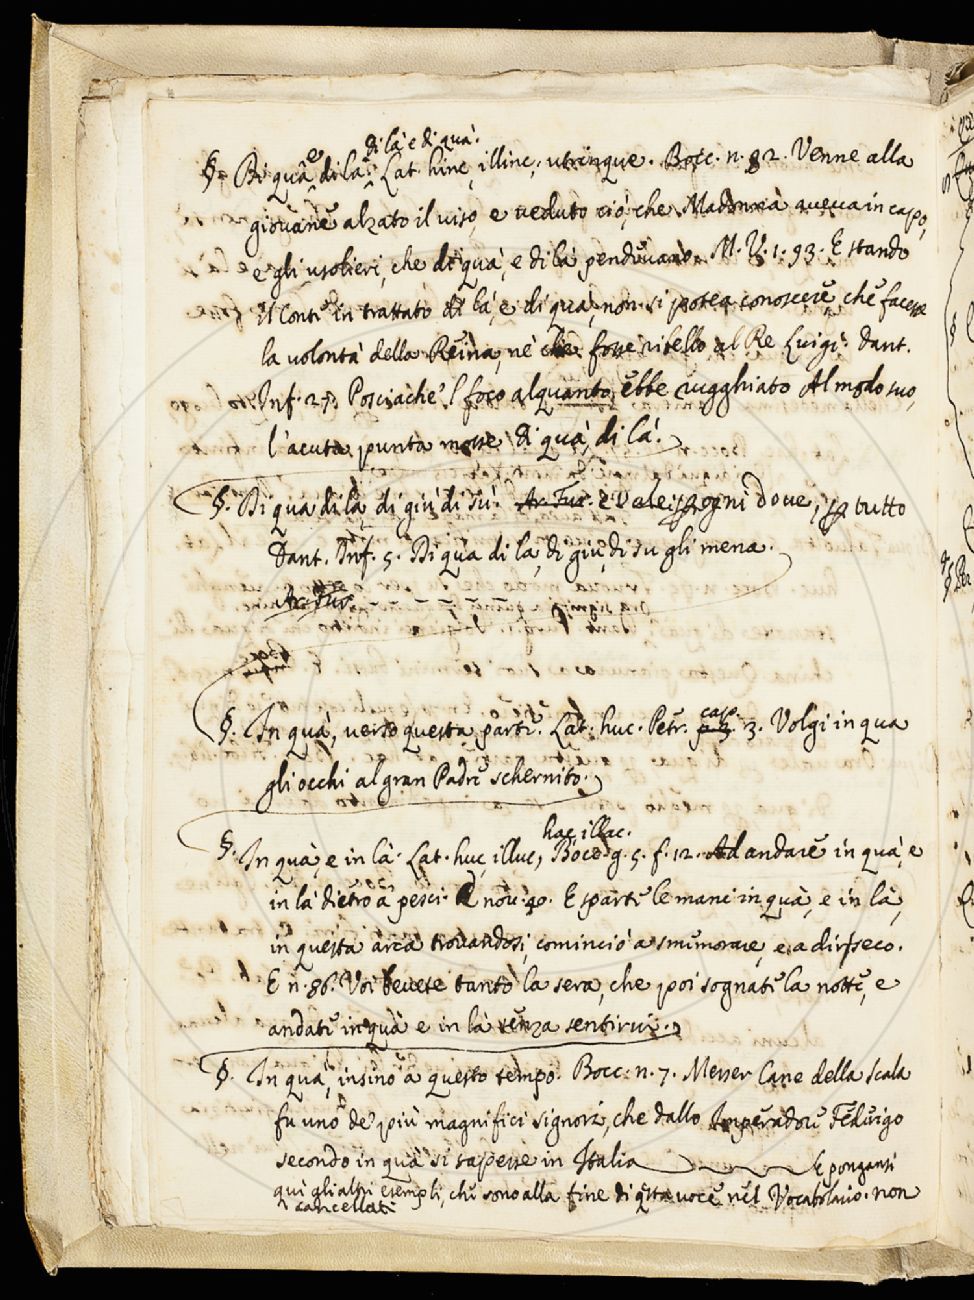 di là e di quà.
§. Di quà e di là. Lat. hinc, illinc; utrinque. Bocc. n. 82. Venne alla
giovane alzato il viso, e veduto ciò, che Madonna aveva in capo,
e gli usolieri, che di quà, e di là pendevano. M. V. 1. 93. E stando
il Conte in trattato di là, e di quà, non si potea conoscere, che facesse
la volontà della Reina, nè che fosse ribello al Re Luigi. Dant.
Inf. 27. Posciache 'l foco alquanto ebbe rugghiato Al modo suo,
l'acuta punta mosse di quà, di là.
§. Di qua di là di giù di sù. Ar. Fur. e Vale per ogni dove, per tutto
Dant. Inf. 5. Di quà di là, di giù, di su gli mena.
Ar. Fur.
§. In quà, verso questa parte. Lat. huc. Petr. cap. 3. Volgi in qua
gli occhi al gran Padre schernito.
hac illac.
§. In quà, e in là. Lat. huc, illuc, Bocc. g. 5. f. 12. Ad andare in quà, e
in là dietro a pesci. E nov. 40. E sparte le mani in quà, e in là,
in questa arca trovandosi, cominciò a smemorare, e a dir seco.
E n. 86. Voi bevete tanto la sera, che poi sognate la notte, e
andate in quà e in là senza sentirvi.
§. In quà, insino a questo tempo. Bocc. n. 7. Messer Cane della Scala
fu uno de' più magnifici signori, che dallo Imperadore Federigo
secondo in quà si sapesse in Italia E pongansi
quì gli altri esempli, che sono alla fine di qsta voce nel Vocabolario. non
cancellati